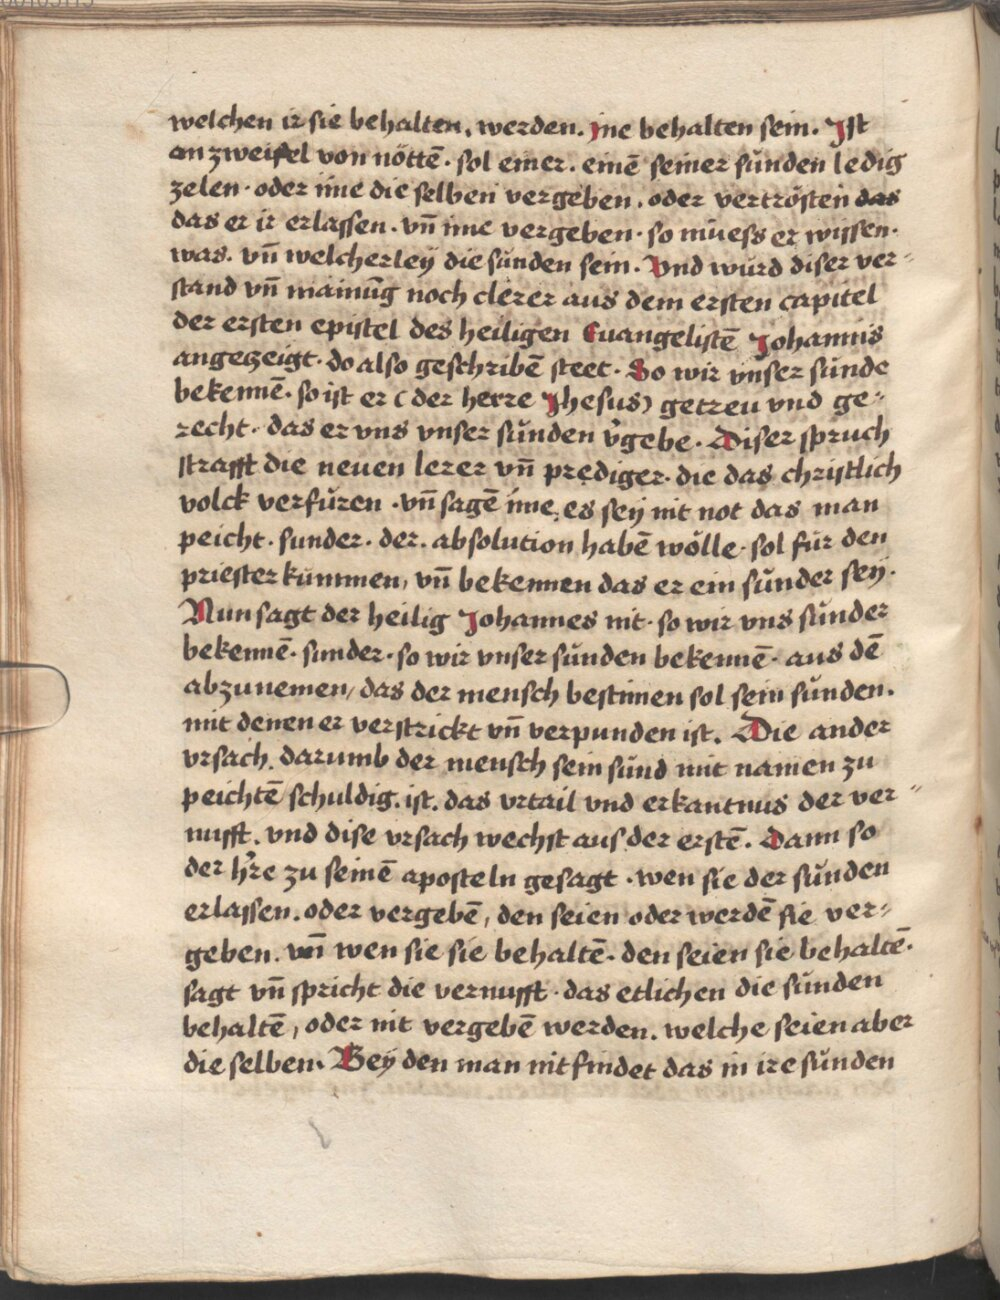 welchen ir sie behalten, werden. jne behalten sein. Ist
an zweifel von nöttē. sol einer. einē seiner sünden ledig
zelen. oder ime die selben vergeben. oder vertrösten das
das er ir erlassen. vn̄ ime vergeben. so müess er wissen.
was. vn̄ welcherleÿ die sünden sein. Vnd würd diser ver-
stand vn̄ mainūg noch clerer aus dem ersten capitel
der ersten epistel des heiligen Euangelistē Johannis
angezeigt. do also geschribē steet. So wir vnser sünde
bekennē. so ist er (der herre Jhesus) getreu vnd ge-
recht. das er vns vnser sünden v̄gebe. Diser spruch
strafft die neuen lerer vn̄ prediger. die das christlich
volck verfüren. vn̄ sagē ime, es seÿ nit not das man
peicht. sunder. der. absolution habē wölle. sol für den
priester kümmen, vn̄ bekennen das er ein sünder seÿ.
Nun sagt der heilig Johannes nit. so wir vns sünder
bekennē. sunder. so wir vnser sünden bekennē. aus dē
abzunemen, das der mensch bestimen sol sein sünden.
mit denen er verstrickt vn̄ verpunden ist. Die ander
vrsach. darumb der mensch sein sünd mit namen zu
peichtē schuldig. ist. das vrtail vnd erkantnus der ver-
nufft. vnd dise vrsach wechst aus der erstē. Dann so
der h̄re zu seinē aposteln gesagt. wen sie der sünden
erlassen. oder vergebē, den seien oder werdē sie ver-
geben. vn̄ wen sie sie behaltē. den seien sie behaltē.
sagt vn̄ spricht die vernufft. das etlichen die sünden
behaltē, oder nit vergebē werden. welche seien aber
die selben. Beÿ den man nit findet das in ire sünden